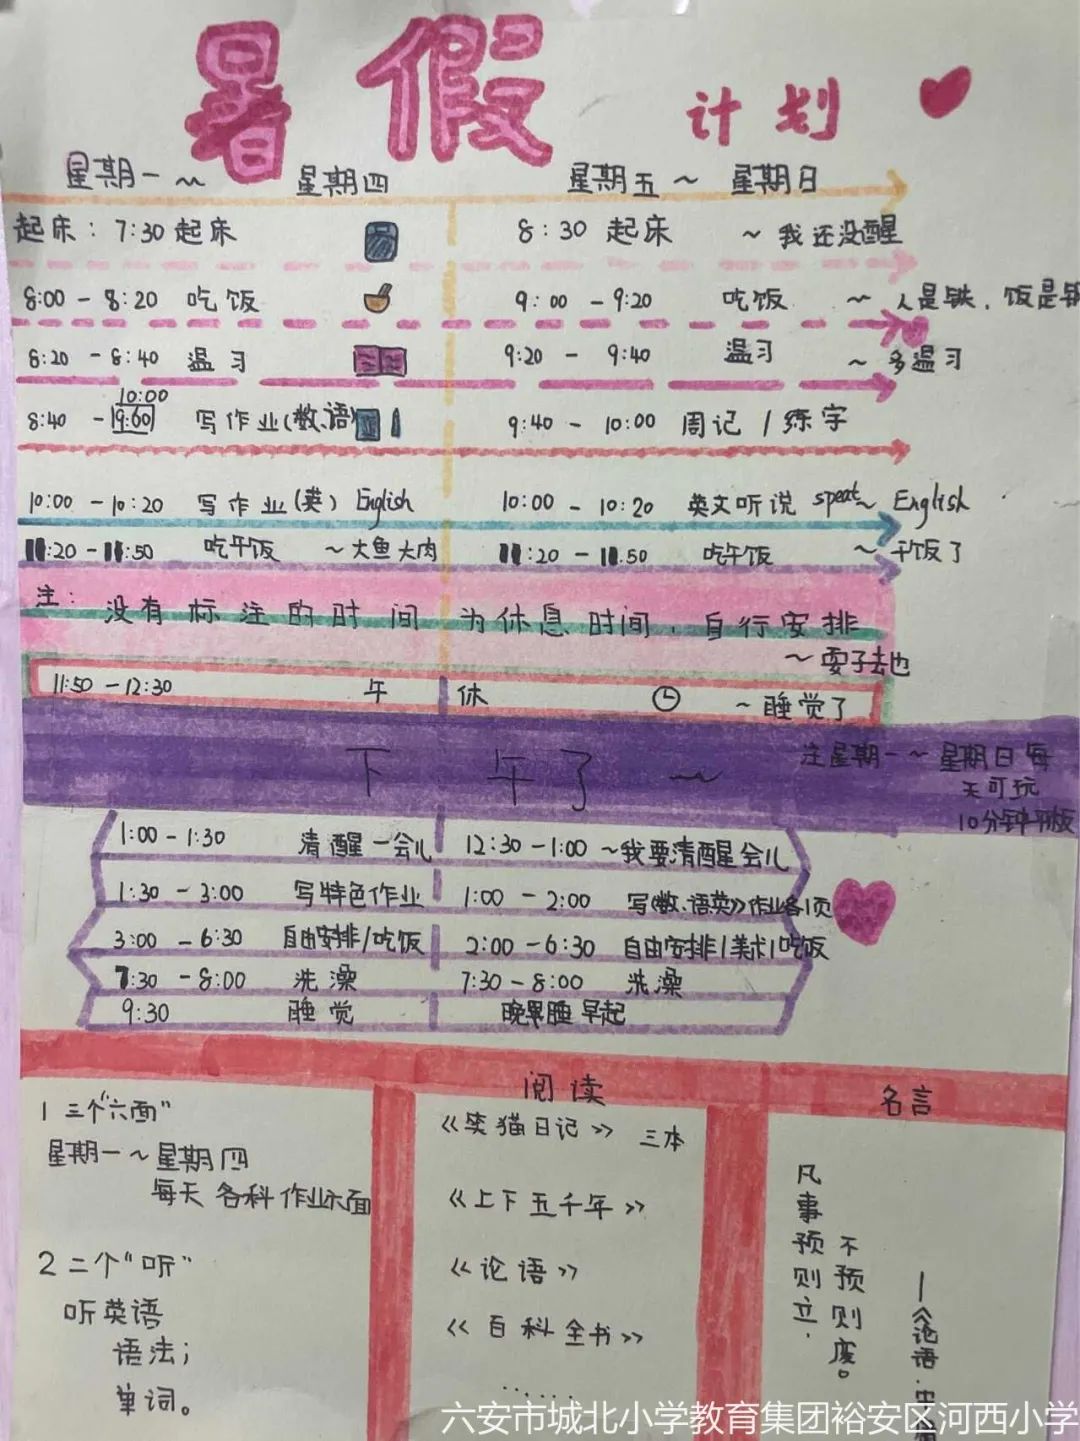 暑假 计划
星期一 ~ 星期四 星期五 ~ 星期日
起床: 7:30 起床 8:30 起床 ~ 我还没醒
8:00 - 8:20 吃饭 9:00 - 9:20 吃饭 ~ 人是铁,饭是钢
8:20 - 8:40 温习 9:20 - 9:40 温习 ~ 多温习
10:00
8:40 - 9:60 写作业(数、语) 9:40 - 10:00 周记 / 练字
10:00 - 10:20 写作业(英) English 10:00 - 10:20 英文听说 speat ~ English
11:20 - 11:50 吃午饭 ~大鱼大肉 11:20 - 11.50 吃午饭 ~ 干饭了
注: 没有标注的时间为休息时间,自行安排
~ 耍子去也
11:50 - 12:30 午休 ~ 睡觉了
下午了 ~
注星期一 ~ 星期日每
天可玩
10分钟平板
1:00 - 1:30 清醒一会儿 12:30 - 1:00 ~我要清醒会儿
1:30 - 3:00 写特色作业 1:00 - 2:00 写《数、语英》作业各1页
3:00 - 6:30 自由安排/吃饭 2:00 - 6:30 自由安排/美术/吃饭
7:30 - 8:00 洗澡 7:30 - 8:00 洗澡
9:30 睡觉 睡早起
1 三个“六面”
星期一 ~ 星期四
每天各科作业六面
2 二个“听”
听英语
语法;
单词。
阅读
《笑猫日记》 三本
《上下五千年》
《论语》
《百科全书》
......
名言
凡事预则立,
不预则废。
—《论语·中庸
六安市城北小学教育集团裕安区河西小学